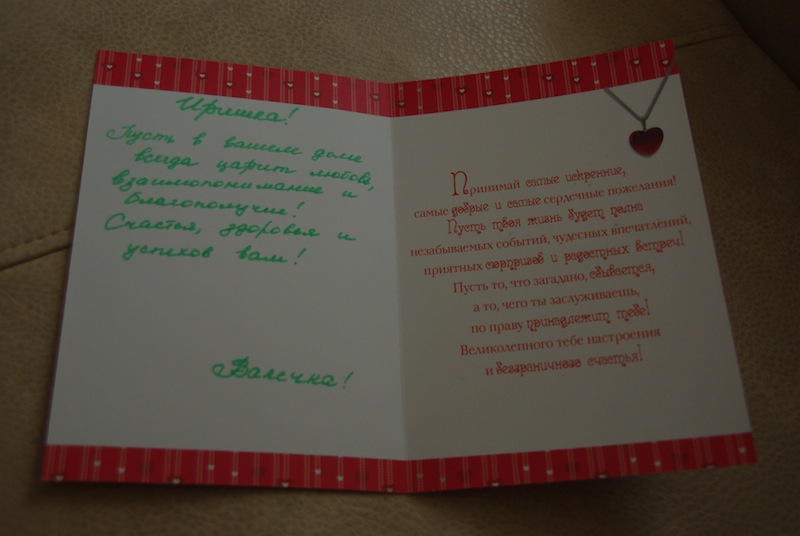 Иришка!
Пусть в вашем доме
всегда царит любовь,
взаимопонимание и
благополучие!
Счастья, здоровья и
успехов вам!
Валечка!
Принимай самые искренние,
самые добрые и самые сердечные пожелания!
Пусть твоя жизнь будет полна
незабываемых событий, чудесных впечатлений,
приятных сюрпризов и радостных встреч!
Пусть то, что загадано, сбывается,
а то, чего ты заслуживаешь,
по праву принадлежит тебе!
Великолепного тебе настроения
и безграничного счастья!